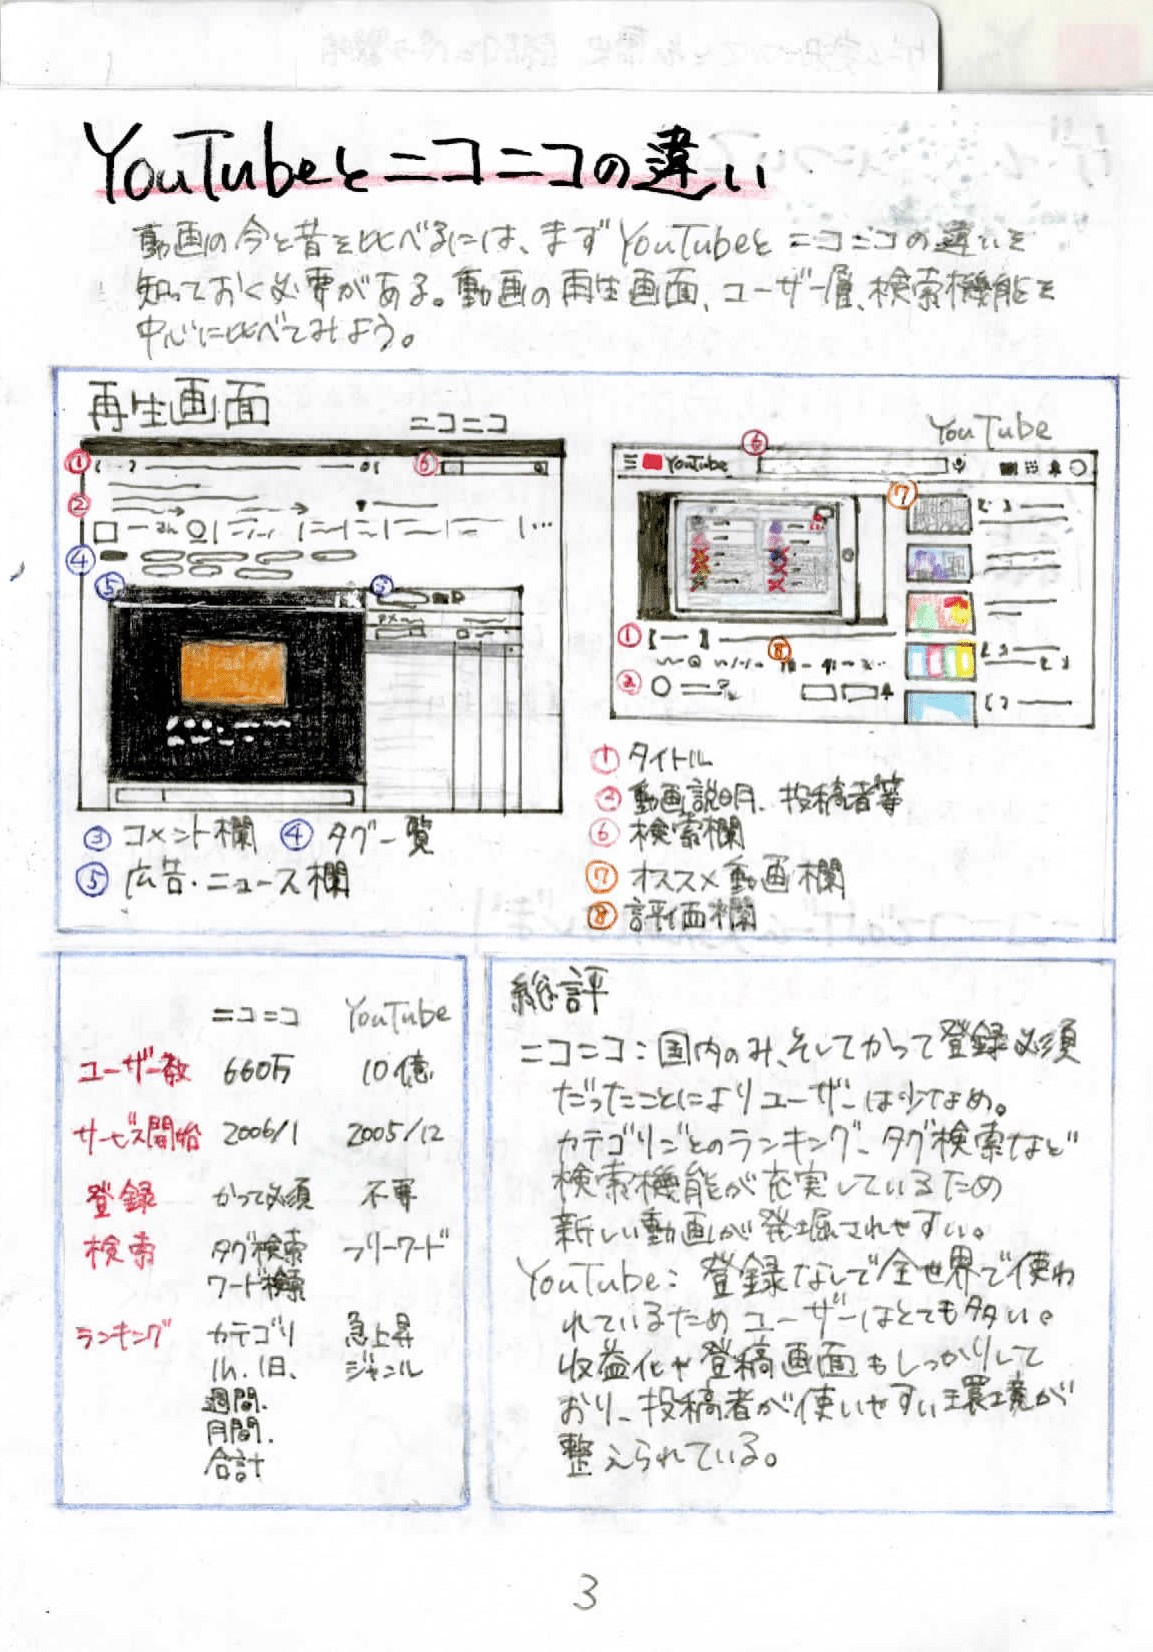 YouTubeとニコニコの違い
動画の今と昔を比べるには、まずYouTubeとニコニコの違いを
知っておく必要がある。動画の再生画面、ユーザー層、検索機能を
中心に比べてみよう。
再生画面
ニコニコ
YouTube
①
⑥
②
④
⑤
③
⑥
YouTube
⑦
①
⑧
②
①タイトル
②動画説明、投稿者等
⑥検索欄
⑦オススメ動画欄
⑧評価欄
③コメント欄 ④タグ一覧
⑤広告・ニュース欄
ニコニコ YouTube
ユーザー数 660万 10億
サービス開始 2006/1 2005/12
登録 かつて必須 不要
検索 タグ検索 フリーワード
ワード検索
ランキング カテゴリ 急上昇
1h、1日、 ジャンル
週間、
月間、
合計
総評
ニコニコ：国内のみ、そしてかつて登録必須
だったことによりユーザーは少なめ。
カテゴリごとのランキング、タグ検索など
検索機能が充実しているため
新しい動画が発掘されやすい。
YouTube：登録なしで全世界で使わ
れているためユーザーはとても多い。
収益化や登稿画面もしっかりして
おり、投稿者が使いやすい環境が
整えられている。
3